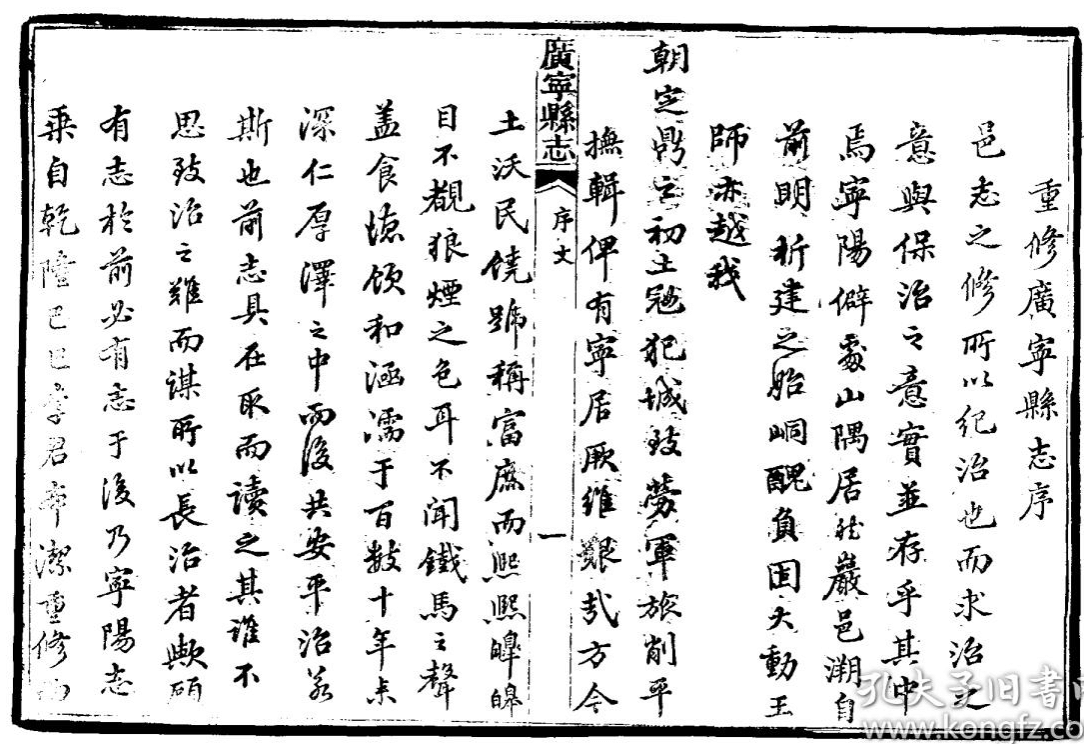 重修廣寧縣志序
邑志之修所以纪治也而求治之
意與保治之意實並存乎其中
焉寧陽僻處山隅居然巖邑溯自
前明析建之始峒醜負固大動王
師亦越我
朝定鼎之初土冦犯城致勞軍旅削平
撫輯俾有寧居厥维艱哉方今
廣寧縣志
序文
一
土沃民饒號稱富庶而熙熙皞皞
目不覩狼煙之色耳不闻鐵馬之聲
盖食德饮和涵濡于百数十年来
深仁厚澤之中而後共安平治若
斯也前志具在取而读之其谁不
思致治之難而谋所以長治者欤顾
有志於前必有志于後乃寧陽志
乘自乾隆己巳李君
潔重修
孔夫子旧书网
www.kongfz.co